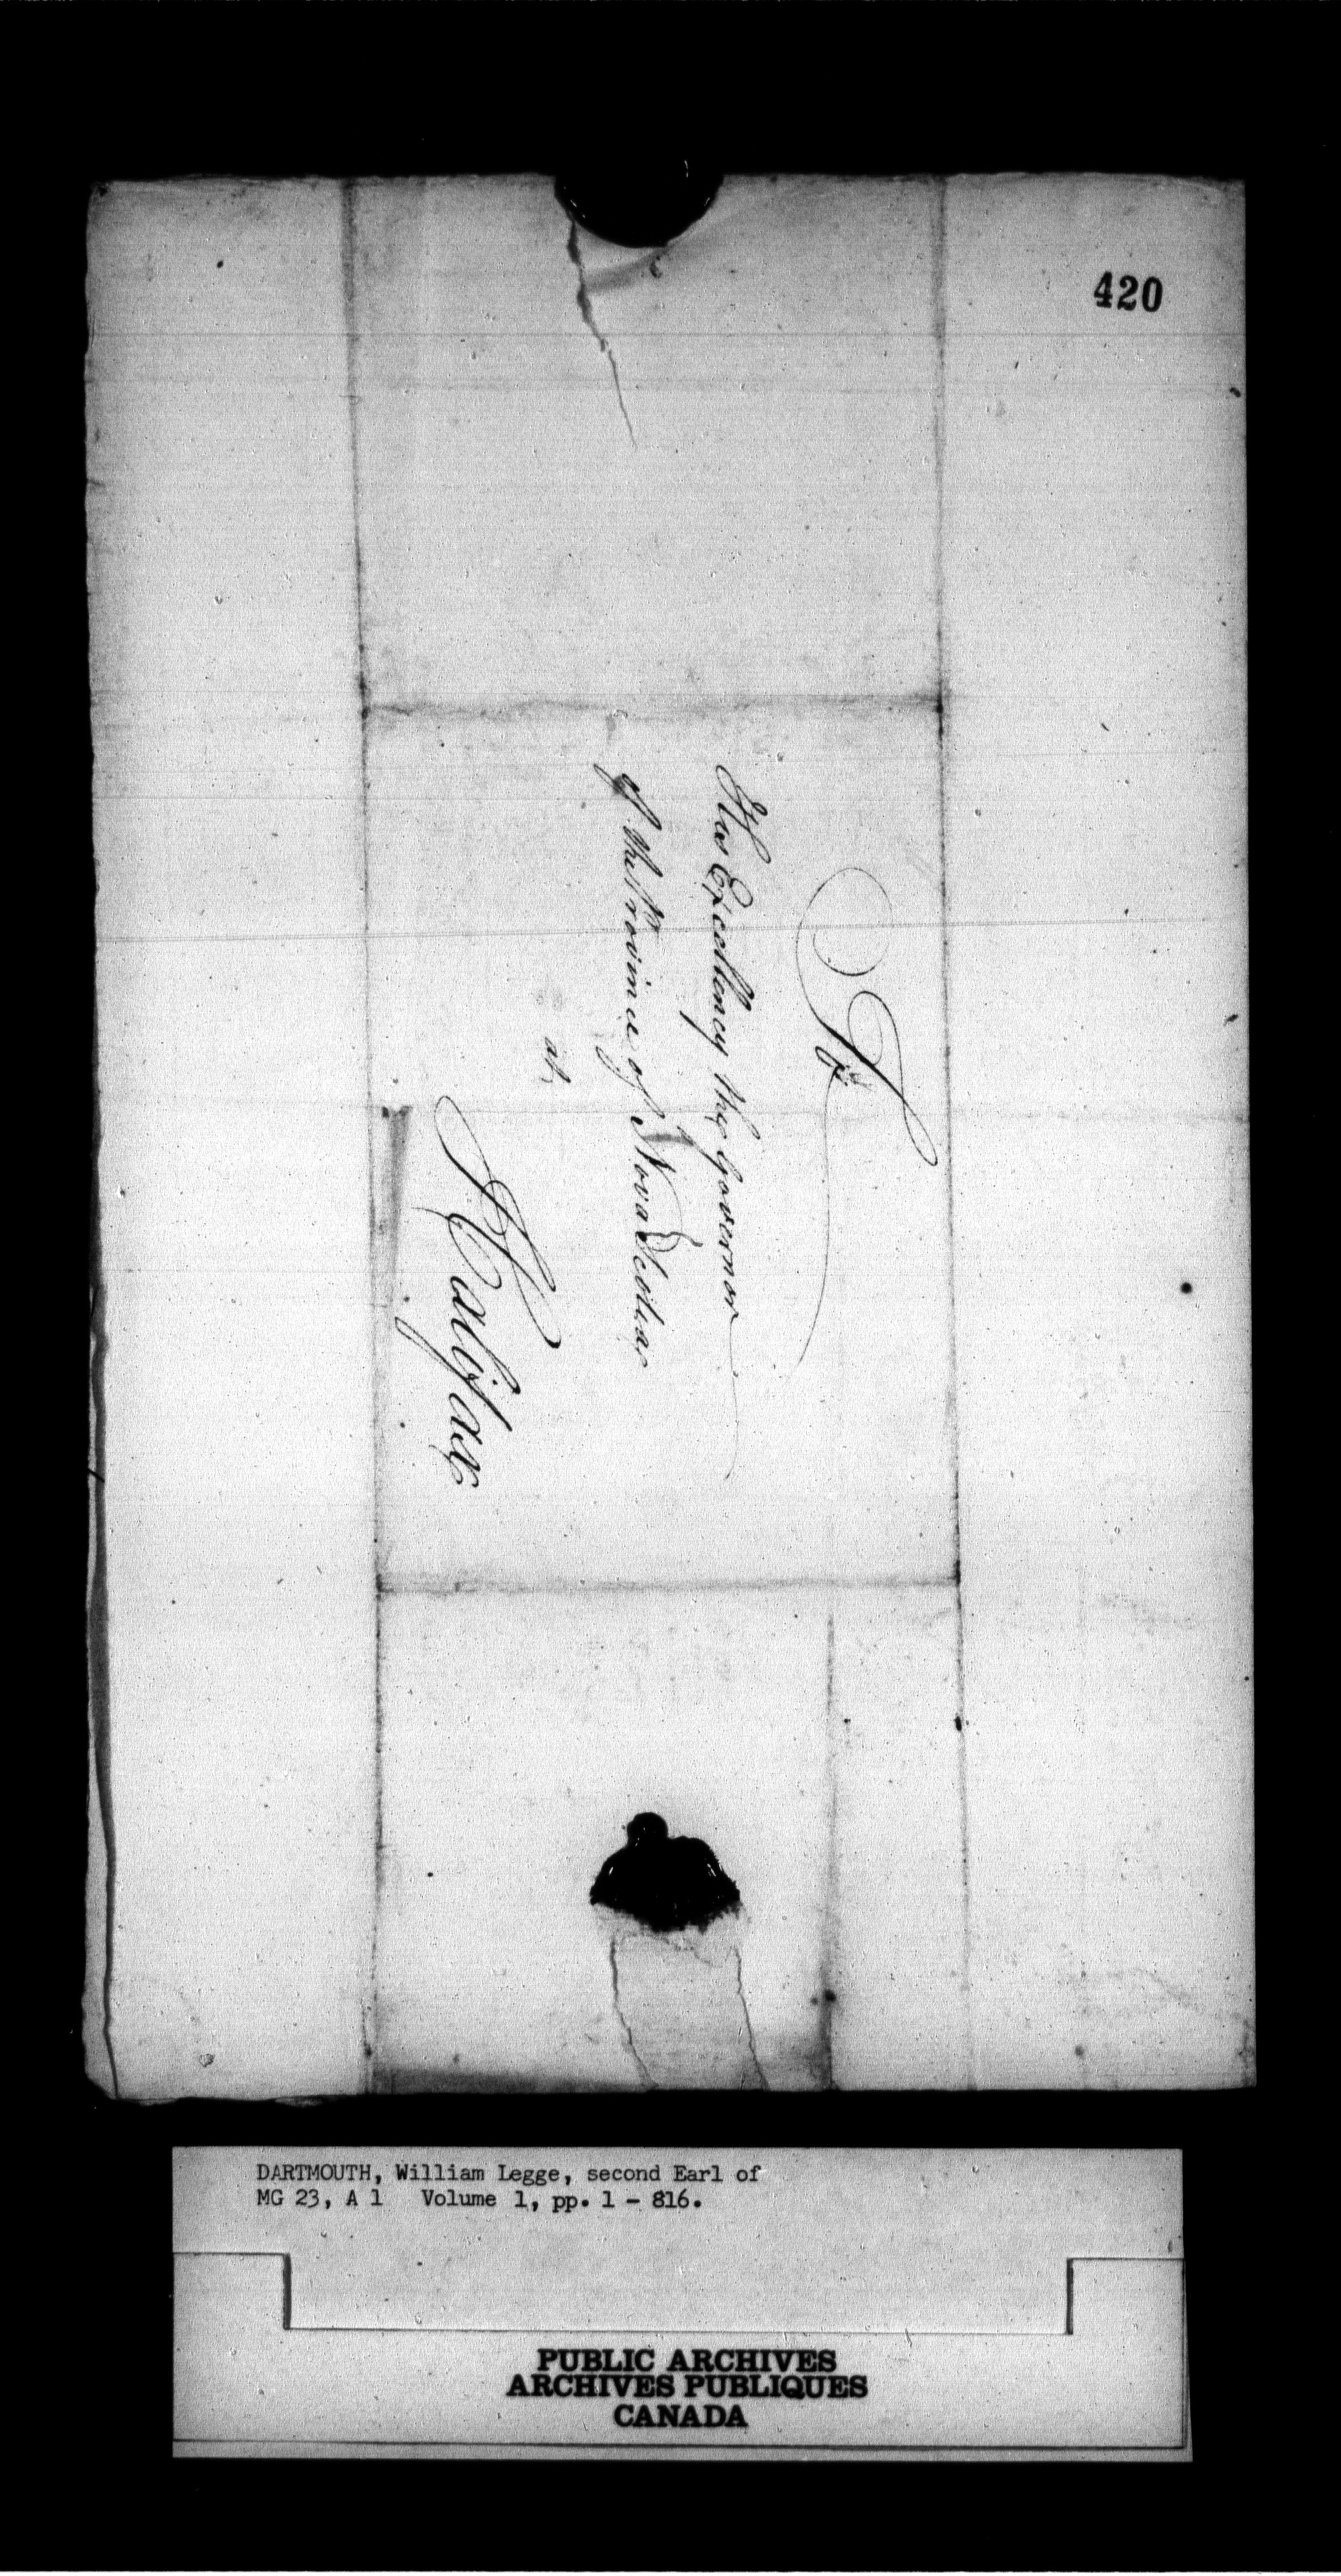 420
To
His Excellency the Governor
of the Province of Nova Scotia
at
Halifax
DARTMOUTH, William Legge, second Earl of
MG 23, A 1 Volume 1, pp. 1 - 816.
PUBLIC ARCHIVES
ARCHIVES PUBLIQUES
CANADA